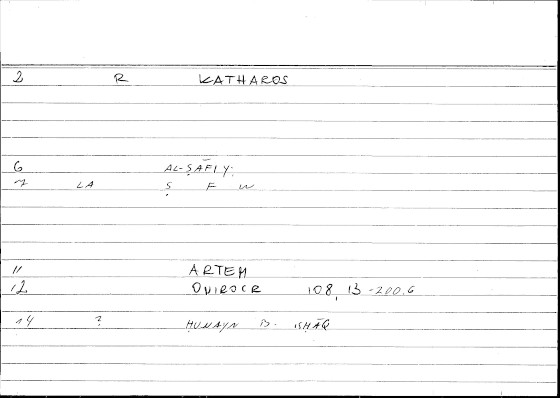 2 R KATHAROS
6 AL-ṢĀFIY
7 LA Ṣ F W
11 ARTEM
12 ONIROCR 108, 13-200.6
14 ? ḤUNAYN B. ISḤĀQ